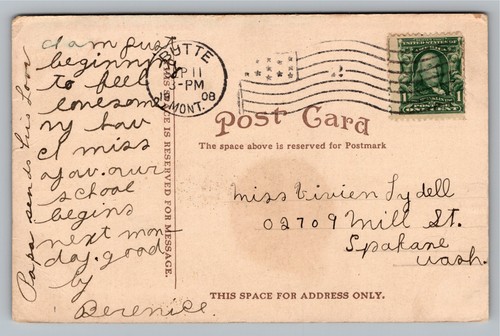 I am just
beginning
to feel
lonesome
my how
I miss
you. our
school
begins
next mon
day. good
by
Berenice.
Papa sends his love
THIS SPACE IS RESERVED FOR MESSAGE.
BUTTE
SEP 11
3-PM
1908
MONT.
Post Card
The space above is reserved for Postmark
Miss Vivien Lydell
02709 Mill St.
Spokane
Wash.
THIS SPACE FOR ADDRESS ONLY.